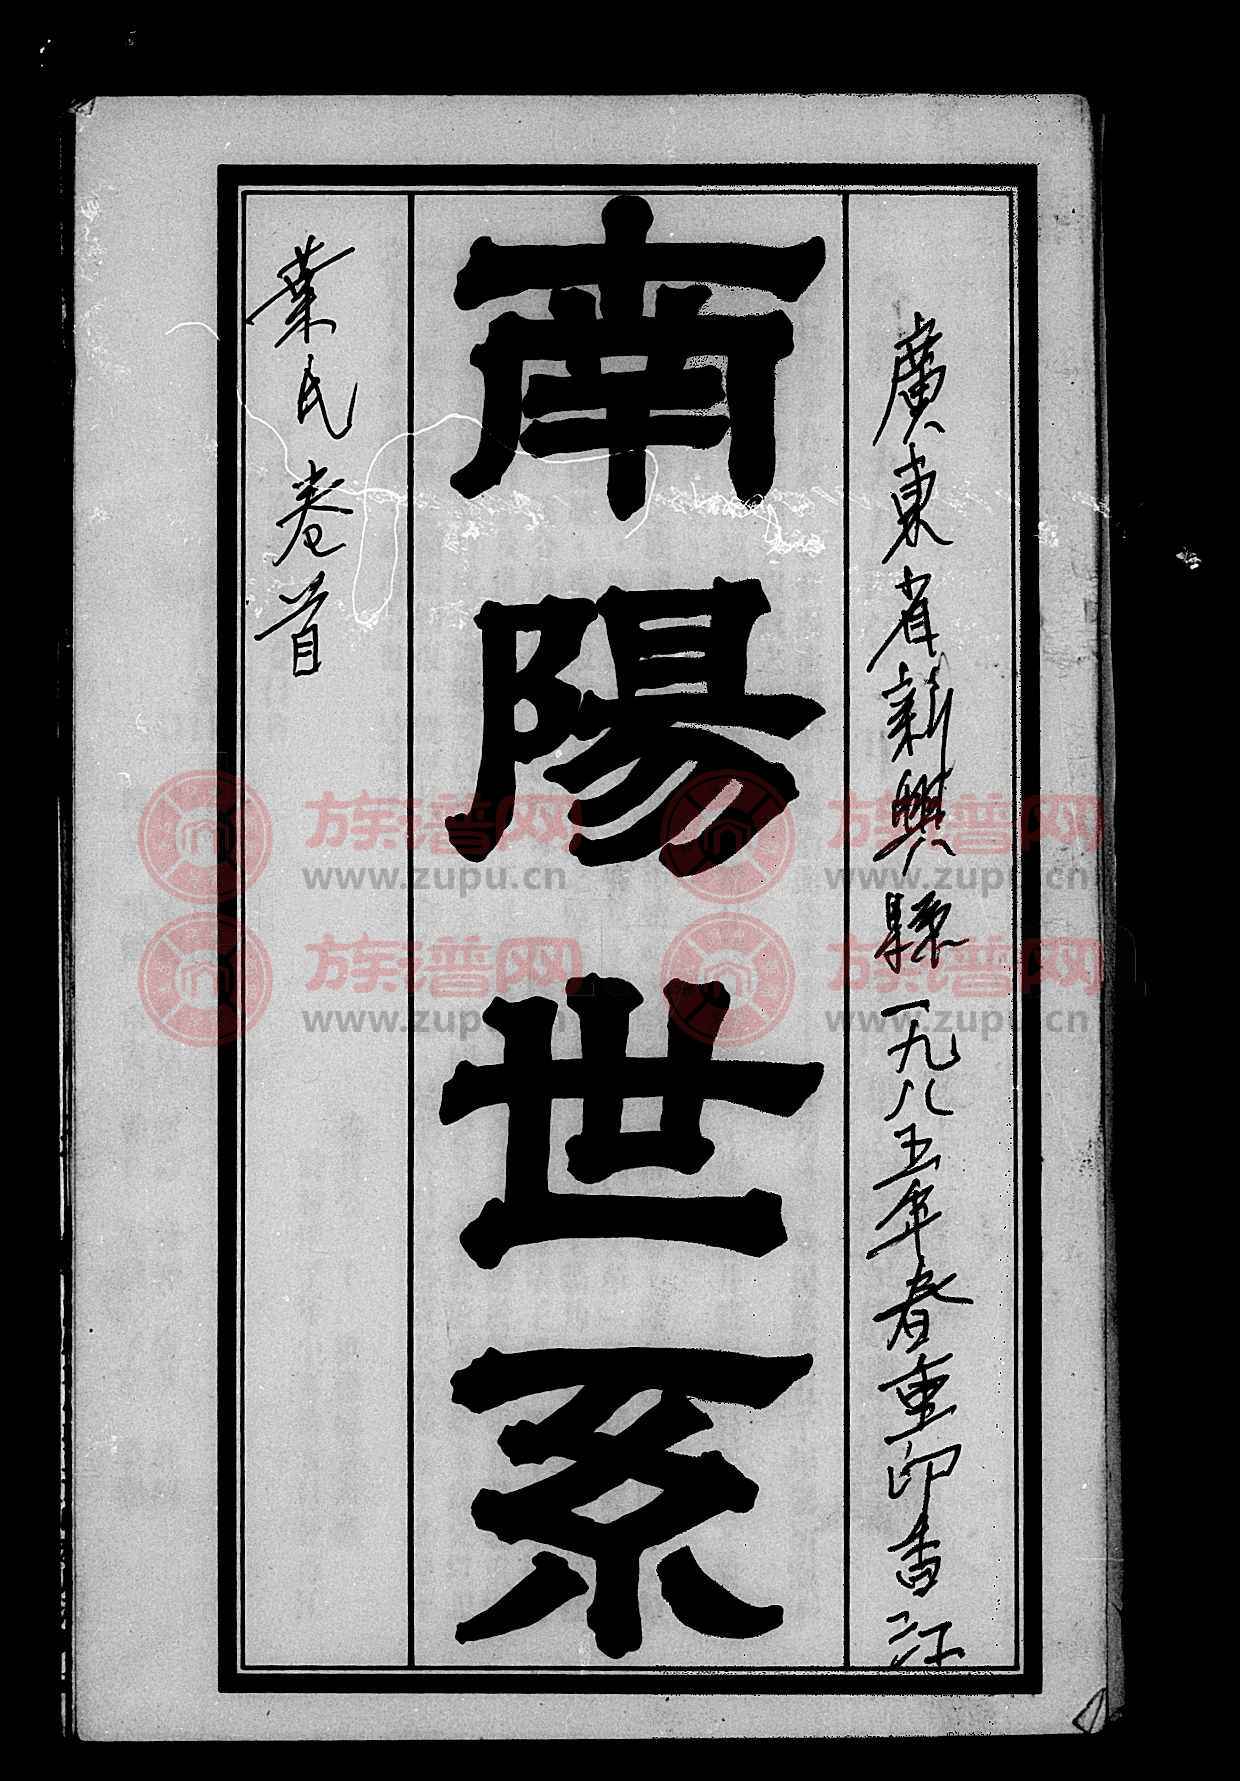 廣東省新興縣一九八五年春重印香江
南陽世系
葉氏卷首
族谱网 族谱网
www.zupu.cn www.zupu.cn
族谱网 族谱网
www.zupu.cn www.zupu.cn